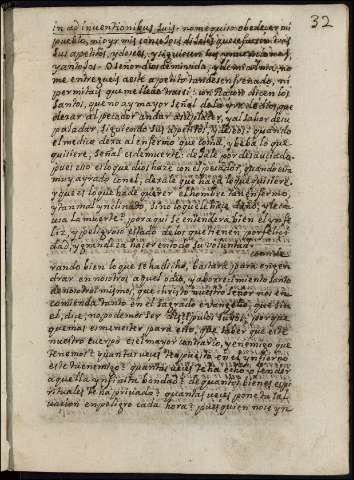 32
in ad inventionibus suis. no me quiso obedecer mi
pueblo, ni oyr mis consejos di deles que se fuesen tras
sus apetitos, y deseos, y siguiesen sus
y antojos. O señor dios de mi vida, y de mi alma, no
me entregueis a este apetito tan desenfrenado, ni
permitais que me lleve tras si: con raçon dicen los
santos, que no ay mayor señal de la yra de dios, que
dexar al pecador andar a su placer, y al sabor de su
paladar, siguiendo sus apetitos, y deseos: quando
el medico dexa al enfermo que coma, y beba lo que
quisiere, señal es de muerte: dexale por desauciado.
pues esto es lo que dios haze con el pecador, quando esta
muy ayrado con el, dexale que haga lo que quisiere.
y que es lo que ha de querer el hombre tan enfermo,
y tan mal ynclinado, sino lo que le haze daño, y le ca
usa la muerte? por aqui se entendera bien el ynfe
liz, y peligroso estado de los que tienen por felici
dad, y grandeza hazer en todo su voluntad.
conside
rando bien lo que se ha dicho, bastarè para engen
drar en nosotros aquel odio, y aborrecimiento santo
de nosotros mismos, que christo nuestro señor nos en
comienda tanto en el sagrado evangelio, que sin
el, dice, no podemos ser discipulos suyos, porque
que mas es menester para esto, que saber que este
nuestro cuerpo es el mayor contrario, y enemigo que
tenemos? quantas veces te a puesto en el ynfierno
este tu enemigo? quantas veces te a hecho ofender
aquella ynfinita bondad? de quantos bienes espi
rituales te ha privado? quantas veces pone tu sal
vacion en peligro cada hora? pues quien no se yn